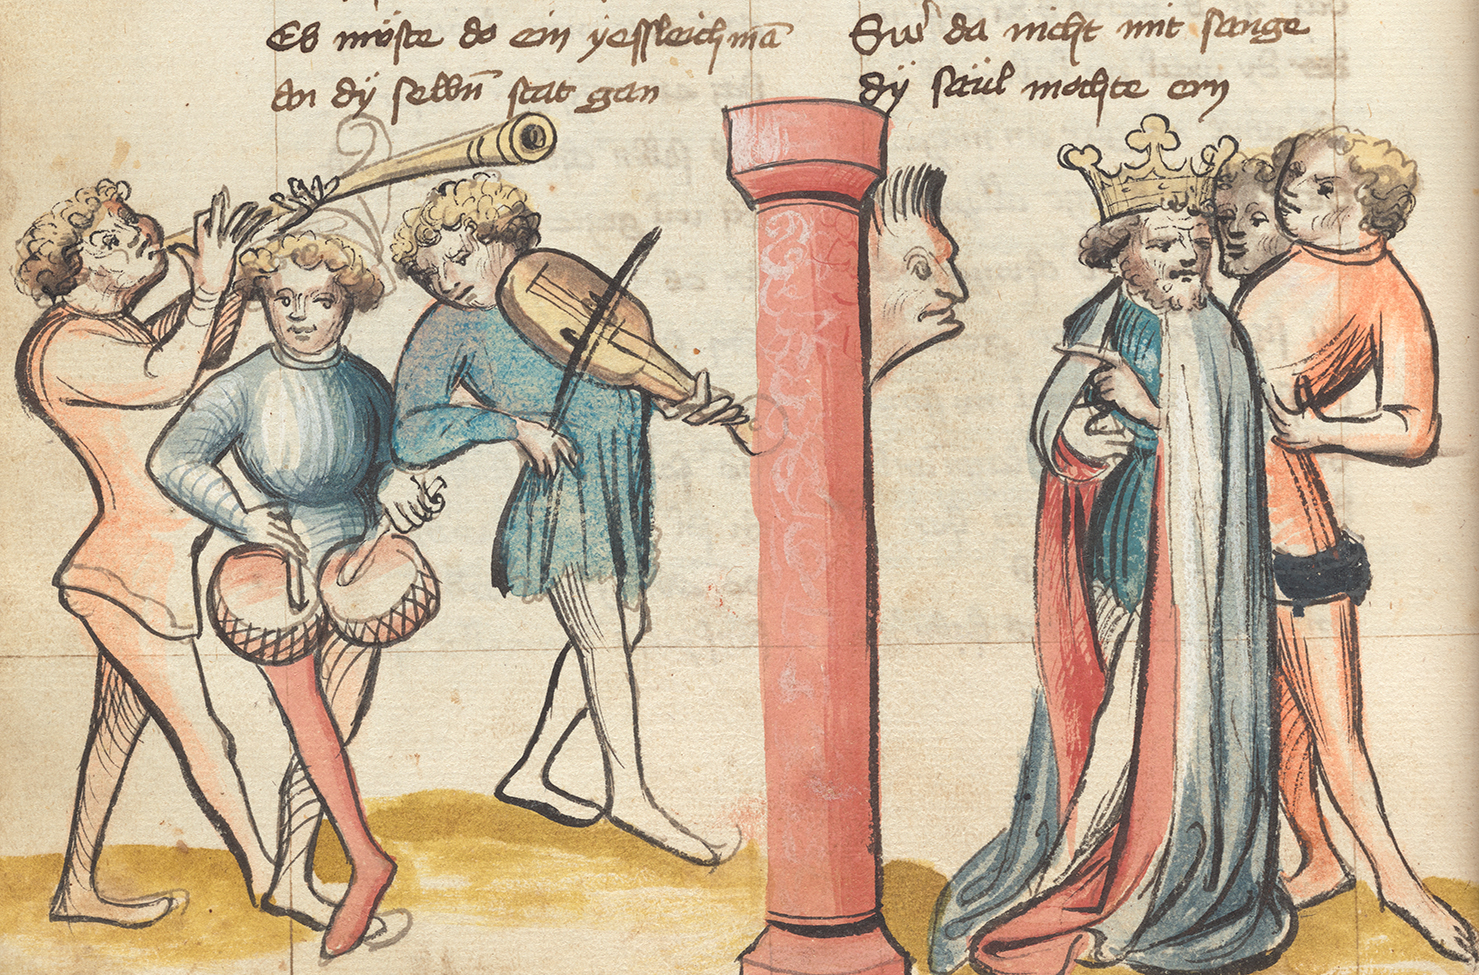 Es müste do ein yeſſleich mā
an dÿ selbñ stat gan
Swˀ da nicht mit sange
dÿ säwl mochte